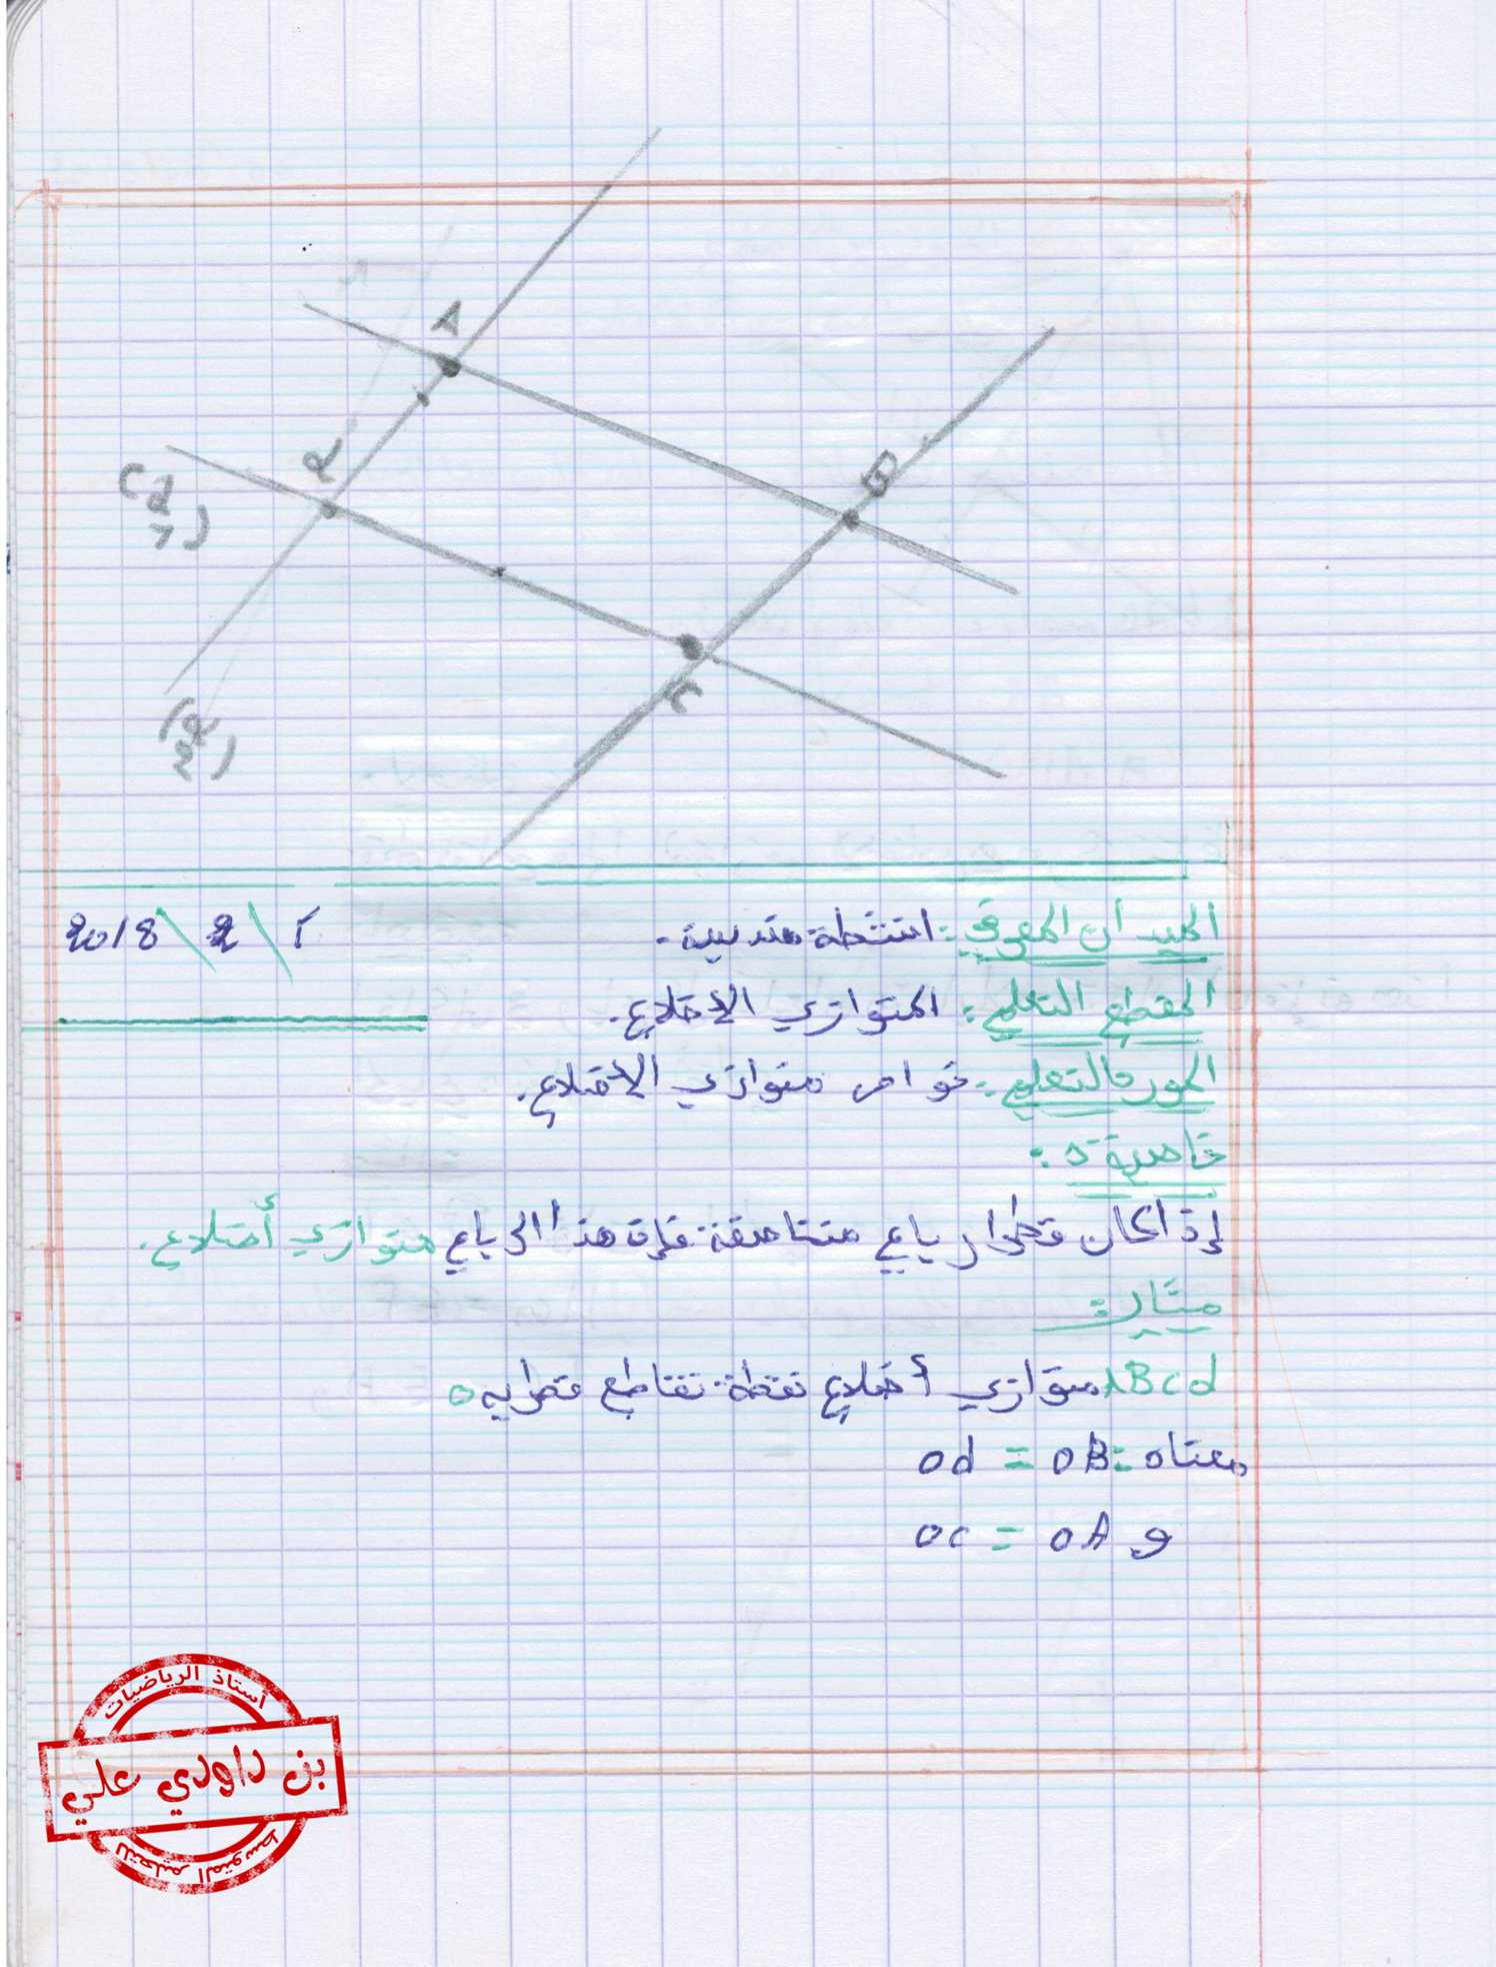 A
B
d
C
(d1)
(d2)
الميدان المعرفي: انشطة هندسية. 1 \ 2 \ 2018
المقطع التعلمي: المتوازي الأضلاع.
المورد التعلمي: خواص متوازي الأضلاع.
خاصية 5:
إذا كان قطرا رباعي متناصفة فإن هذا الرباعي متوازي أضلاع.
مثال:
ABcd متوازي أضلاع نقطة تقاطع قطرايه o
معناه: OB = Od
و OA = Oc
أستاذ الرياضيات
بن داودي علي
للتعليم المتوسط